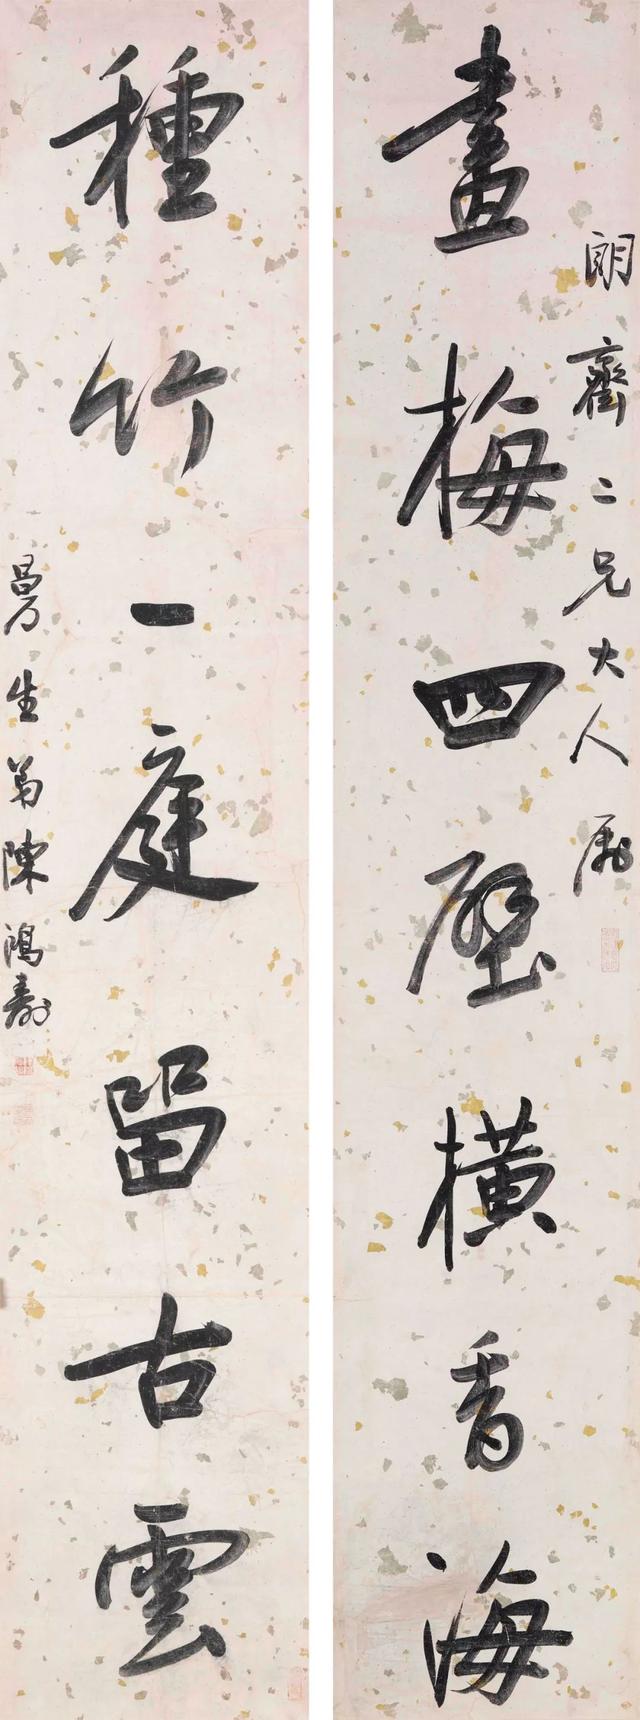 朗齋二兄大人屬
畫梅四壁橫香海
種竹一庭留古雲
曼生弟陳鴻壽